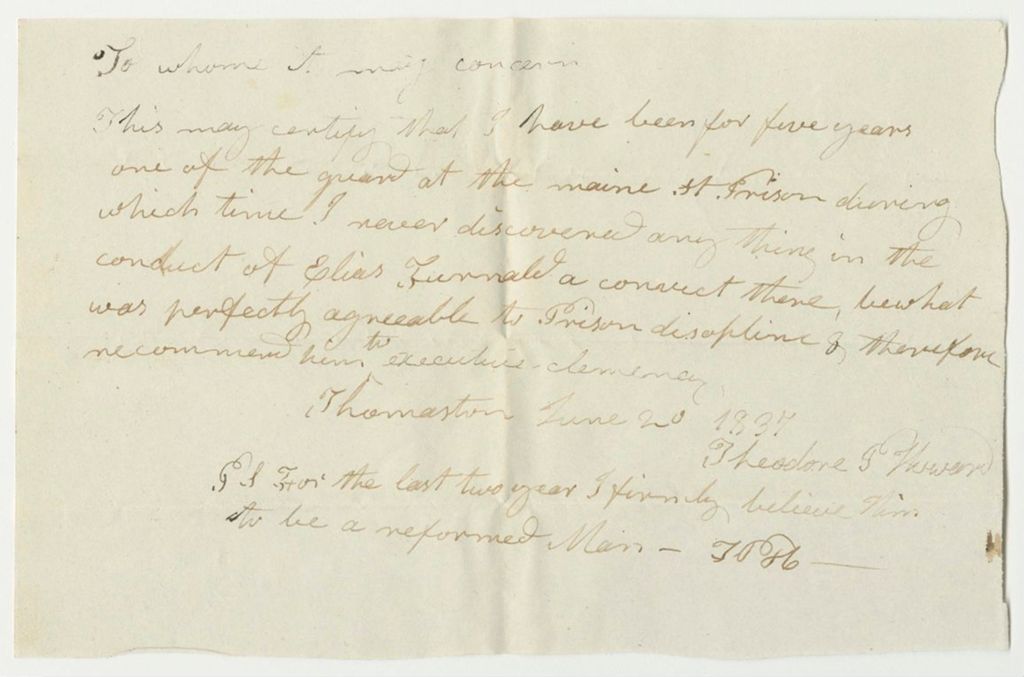 To whome it may concern
This may certify that I have been for five years
one of the guard at the maine St Prison during
which time I never discovered any thing in the
conduct of Elias Furnald a convict there, bewhat
was perfectly agreeable to Prison disopline & therefore
recommend him to executive clemency
Thomaston June 20 1837
Theodore P Howard
P S For the last two year I firmly believe him
to be a reformed Man - T P H -